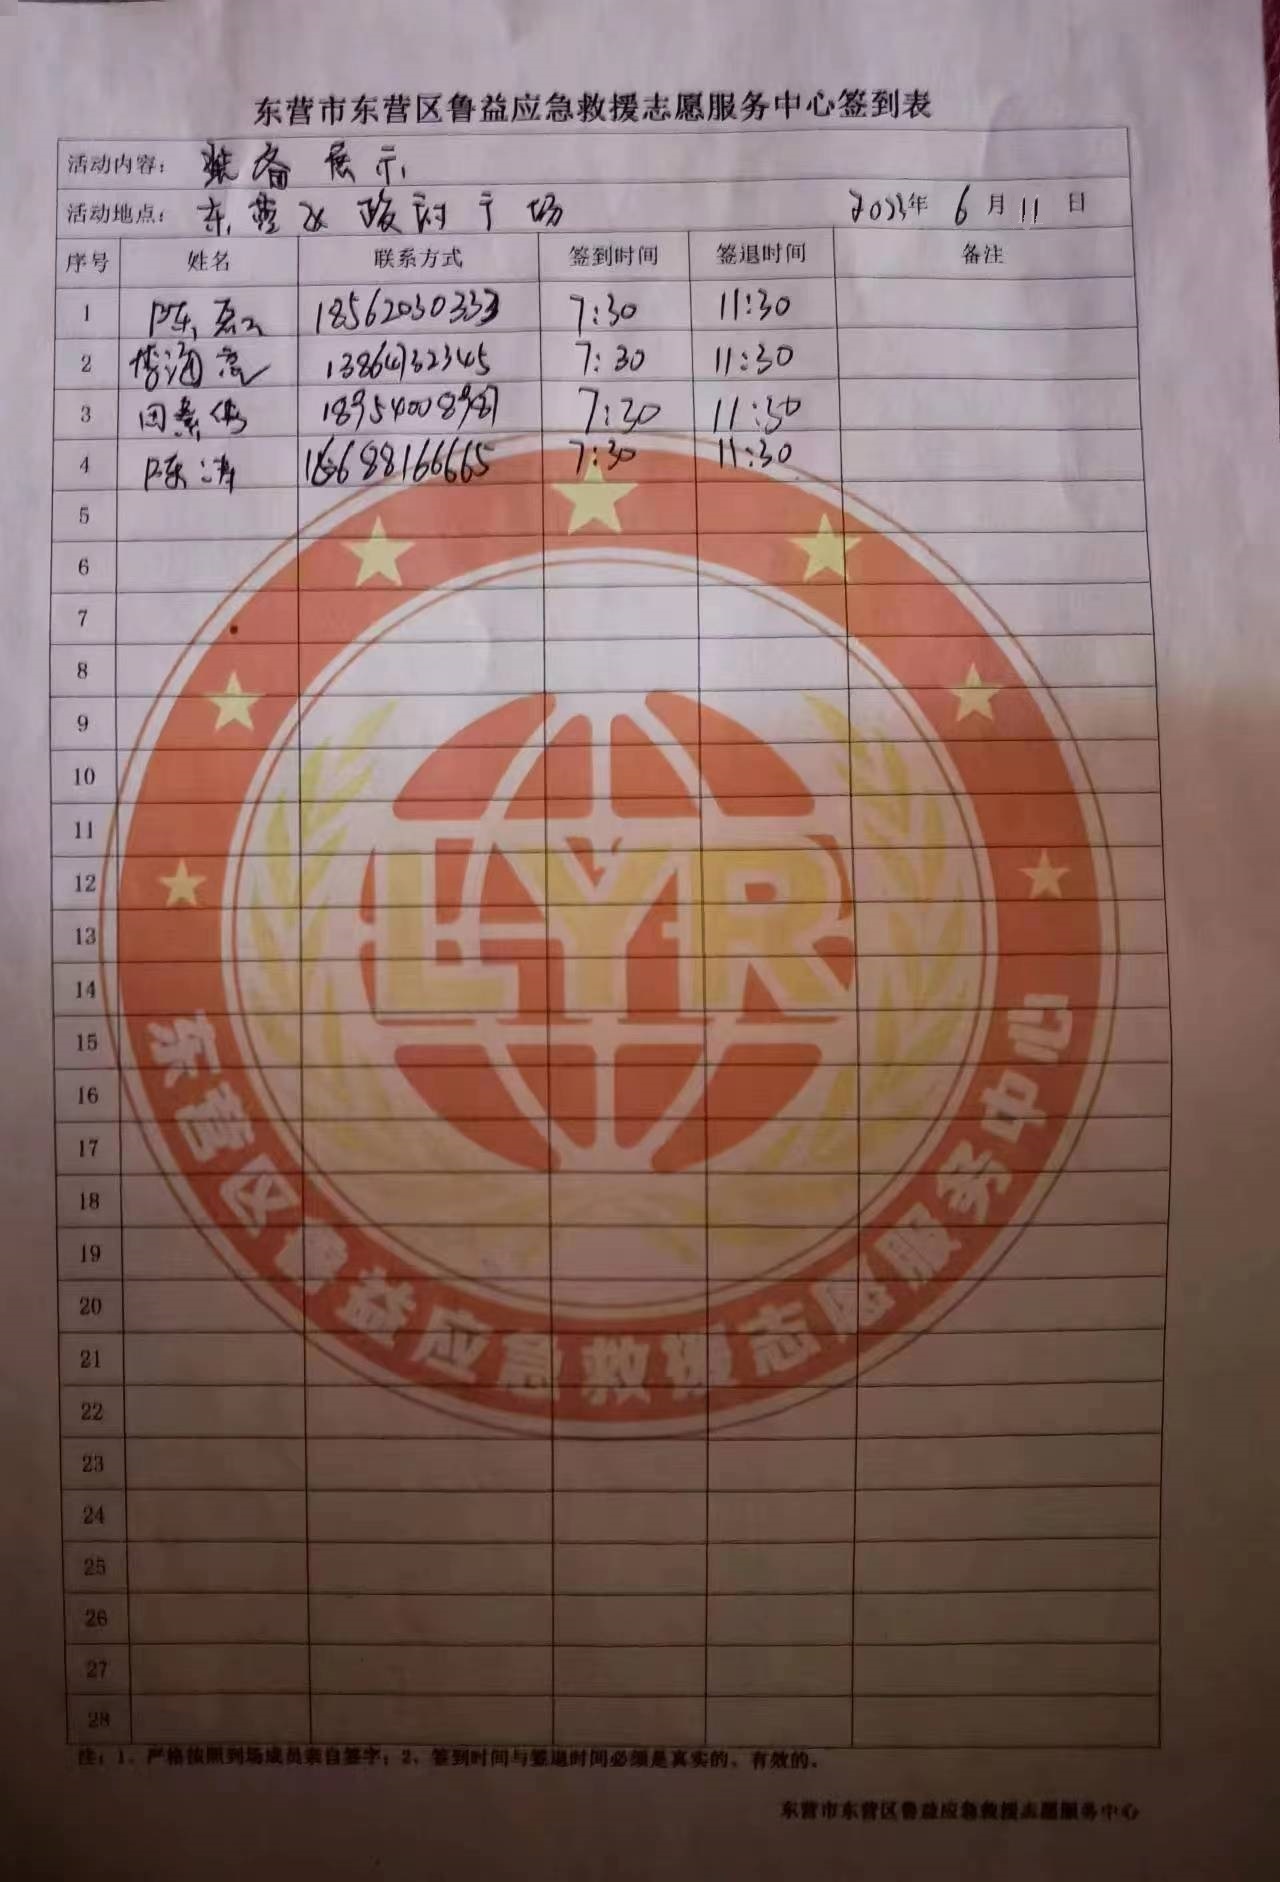 东营市东营区鲁益应急救援志愿服务中心签到表
活动内容： 装备展示
活动地点： 东营区政府广场 2023年 6月 11日
序号 姓名 联系方式 签到时间 签退时间 备注
1 陈磊 18562030333 7:30 11:30
2 13864732345 7:30 11:30
3 18954008987 7:30 11:30
4 陈涛 15688166665 7:30 11:30
5
6
7
8
9
10
11
12
13
14
15
16
17
18
19
20
21
22
23
24
25
26
27
28
LYR
东营区鲁益应急救援志愿服务中心
注：1、严格按照到场成员亲自签字；2、签到时间与签退时间必须是真实的、有效的。
东营市东营区鲁益应急救援志愿服务中心